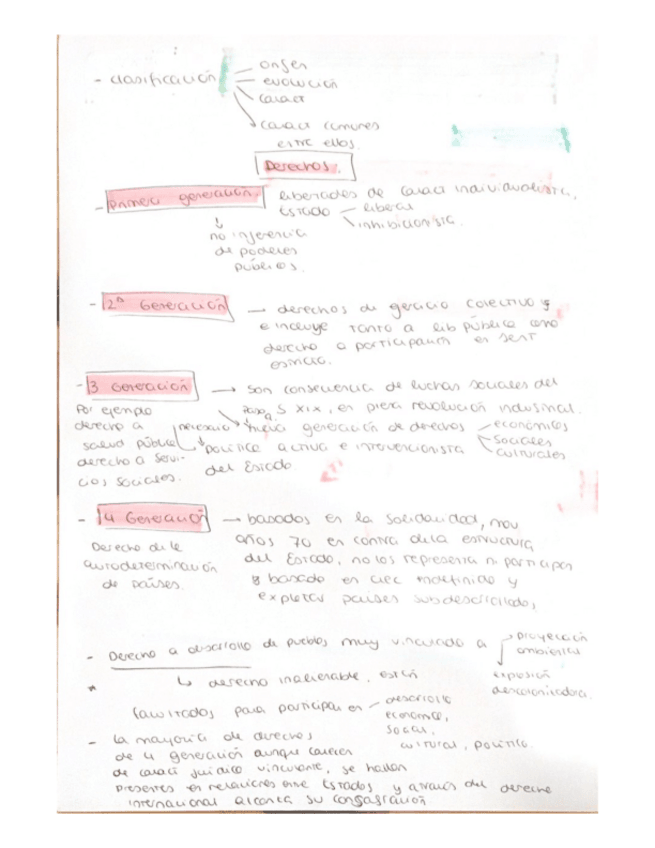 - clasificación
origen
evolución
caract
caract comunes
entre ellos.
Derechos.
- primera generación
libertades de caract individualista,
Estado
liberal
inhibicionista.
no injerencia
de poderes
públicos.
- 2ª Generación → derechos de ejercicio colectivo y
e incluye tanto a lib pública como
derecho a participación en sent
estricto.
- 3 Generación → son consecuencia de luchas sociales del
S XIX, en plena revolución industrial.
nueva generación de derechos
económicos
sociales
culturales
necesario
política activa e intervencionista
del Estado
Por ejemplo
derecho a
salud pública
derecho a servi-
cios sociales.
- 4 Generación → basados en la solidaridad, mov
años 70 en contra de la estructura
del Estado, no los representa ni participan
basado en crec indefinido y
explotar países subdesarrollados,
Derecho de le
autodeterminación
de países.
- Derecho a desarrollo de pueblos muy vinculado a
protección
ambiental
explosión
descolonizadora.
* ↳ derecho inalienable. están
facultados para participar en
desarrollo
económico,
social,
cultural, político.
- La mayoría de derechos
de 4 generación aunque carecen
de caract jurídico vinculante, se hallan
presentes en relaciones entre Estados y a través del derecho
internacional alcanza su consagración